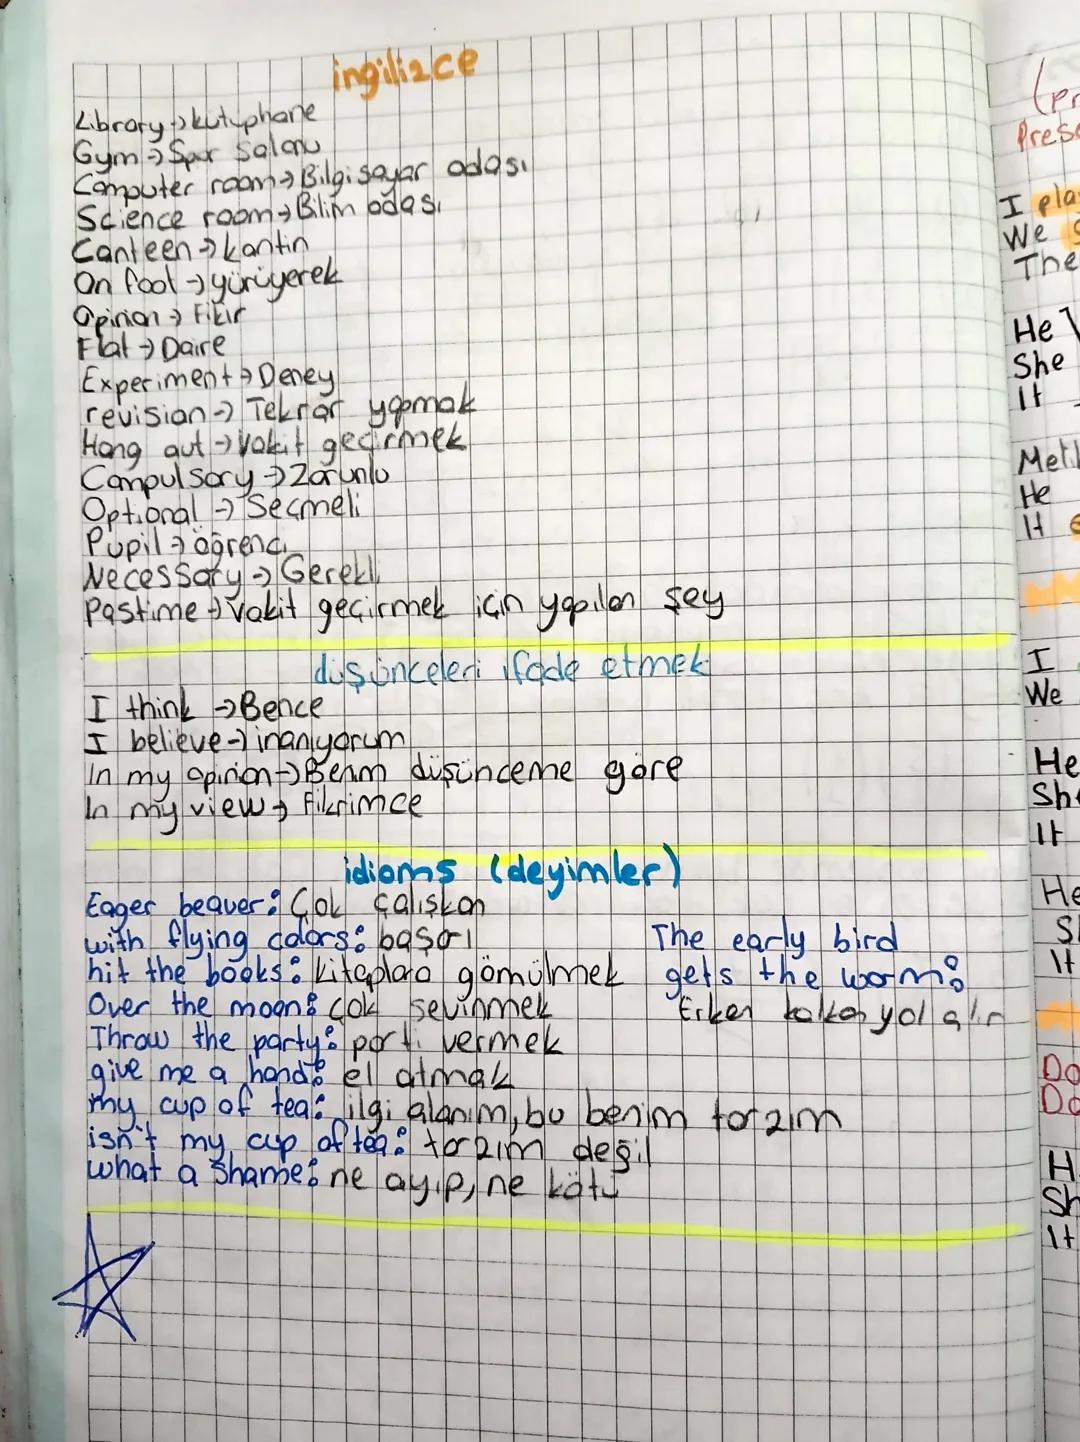 ingilizce
Library → kütüphane
Gym → Spor Salonu
Computer room → Bilgisayar odası
Science room → Bilim odası
Canteen → kantin
On foot → yürüyerek
Opinion → Fikir
Flat → Daire
Experiment → Deney
revision → Tekrar yapmak
Hang out → Vakit geçirmek
Compulsory → Zorunlu
Optional → Seçmeli
Pupil → öğrenci
Necessary → Gerekli
pastime → Vakit geçirmek için yapılan şey
düşünceleri ifade etmek
I think → Bence
I believe → inanıyorum
In my opinion → Benim düşünceme göre
In my view → Fikrimce
idioms (deyimler)
Eager beaver: Çok çalışkan
with flying colors: başarı
hit the books: kitaplara gömülmek
Over the moon: çok sevinmek
Throw the party: parti vermek
give me a hand: el atmak
my cup of tea: ilgi alanım, bu benim tarzım
isn't my cup of tea: tarzım değil
what a shame: ne ayıp, ne kötü
The early bird
gets the worm:
Erken kalkan yol alır
I
We
The
He
She
It
He
It
I
We
He
It
He
It
Do
Do
It